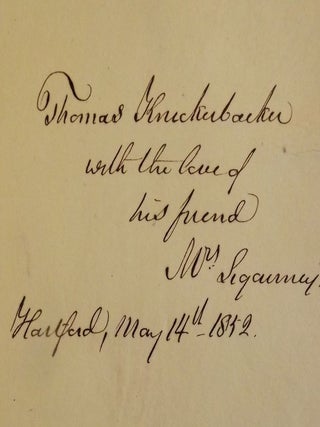 Thomas Knickerbacker
with the love of
his friend
Mrs Sigourney.
Hartford, May 14th 1852.